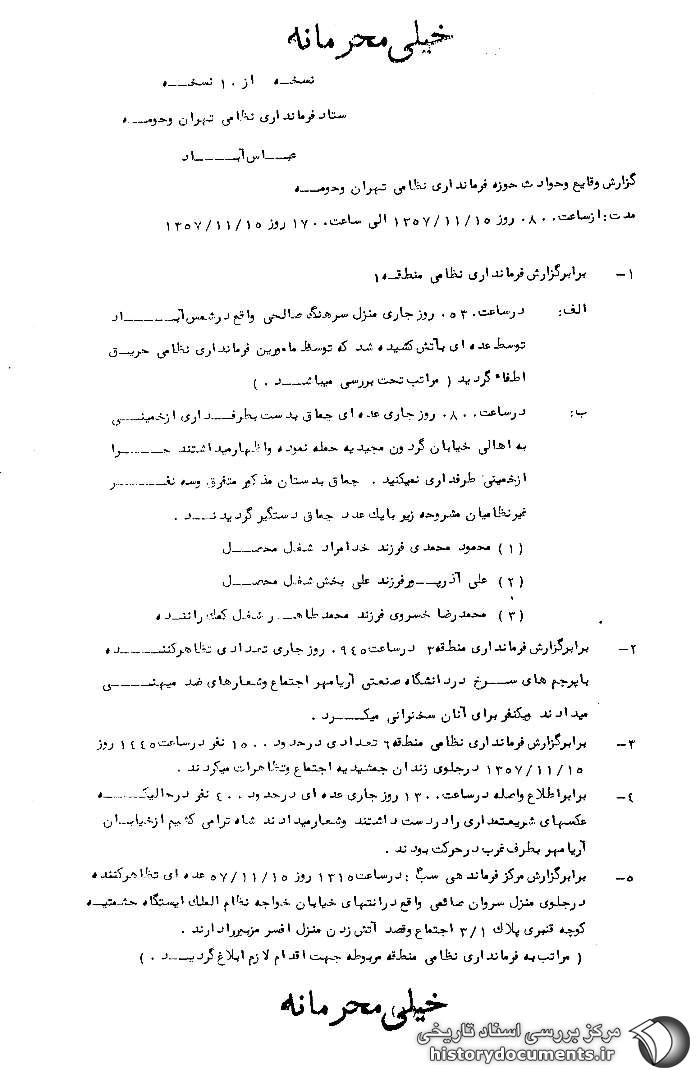 خیلی محرمانه
نسخه از ۱۰ نسخه
ستاد فرمانداری نظامی تهران وحومه
عباس آباد
گزارش وقایع وحوادث حوزه فرمانداری نظامی تهران وحومه
مدت : ازساعت ۰۸۰۰ روز ۱۳۵۷/۱۱/۱۵ الی ساعت ۱۷۰۰ روز ۱۳۵۷/۱۱/۱۵
۱- برابرگزارش فرمانداری نظامی منطقه ۱
الف: درساعت ۰۵۳۰ روز جاری منزل سرهنگ صالحی واقع درشمس آباد
توسط عده ای بآتش کشیده شد که توسط مامورین فرمانداری نظامی حریق
اطفاء گردید ( مراتب تحت بررسی میباشد . )
ب: درساعت ۰۸۰۰ روز جاری عده ای چماق بدست بطرفداری ازخمینی
به اهالی خیابان گردون مجیدیه حمله نموده واظهارمیداشتند چرا
ازخمینی طرفداری نمیکنید . چماق بدستان مذکور متفرق وسه نفر
غیرنظامیان مشروحه زیر بایک عدد چماق دستگیر گردیدند .
(۱) محمود محمدی فرزند خدامراد شغل محصل
(۲) علی آذرپور فرزند علی بخش شغل محصل
(۳) محمدرضا خسروی فرزند محمدطاهر شغل کمک راننده
۲- برابرگزارش فرمانداری منطقه ۳ درساعت ۰۹۴۵ روز جاری تعدادی تظاهرکننده
باپرچم های سرخ دردانشگاه صنعتی آریامهر اجتماع وشعارهای ضد میهنی
میدادند ویکنفر برای آنان سخنرانی میکرد .
۳- برابرگزارش فرمانداری نظامی منطقه ۶ تعدادی درحدود ۱۵۰۰ نفر درساعت ۱۴۴۵ روز
۱۳۵۷/۱۱/۱۵ درجلوی زندان جمشیدیه اجتماع وتظاهرات میکردند .
۴- برابراطلاع واصله درساعت ۱۳۰۰ روز جاری عده ای درحدود ۴۰۰ نفر درحالیکه
عکسهای شریعتمداری رادردست داشتند وشعارمیدادند شاه ترامی کشیم ازخیابان
آریامهر بطرف غرب درحرکت بودند .
۵- برابرگزارش مرکز فرماندهی : درساعت ۱۳۱۵ روز ۵۷/۱۱/۱۵ عده ای تظاهرکننده
درجلوی منزل سروان صائمی واقع درانتهای خیابان خواجه نظام الملک ایستگاه حشمتیه
کوچه قنبری پلاک ۳/۱ اجتماع وقصد آتش زدن منزل افسر مزبررادارند .
( مراتب به فرمانداری نظامی منطقه مربوطه جهت اقدام لازم ابلاغ گردید . )
خیلی محرمانه
مرکز بررسی اسناد تاریخی
historydocuments.ir